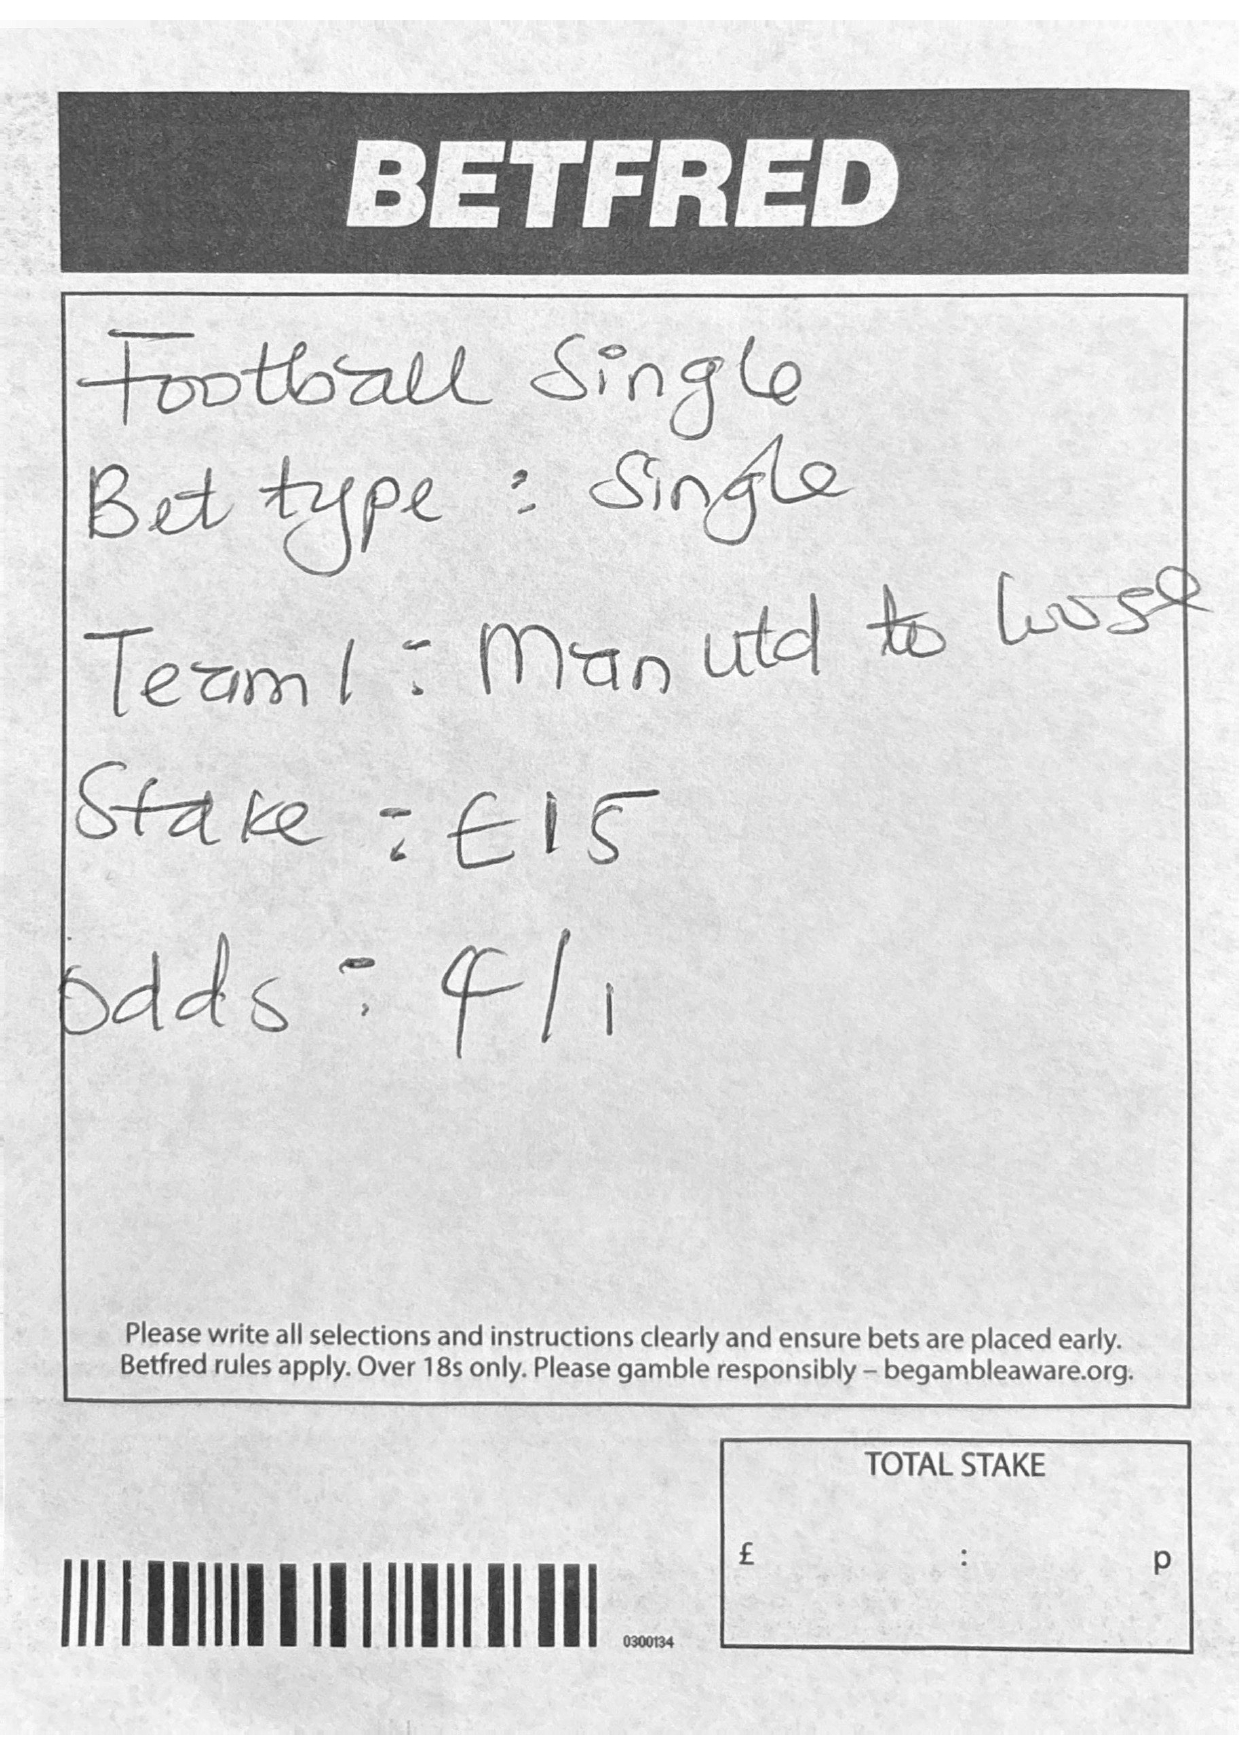 BETFRED
Football Single
Bet type : Single
Team 1 : Man utd to loose
Stake : £15
odds : 4/1
Please write all selections and instructions clearly and ensure bets are placed early.
Betfred rules apply. Over 18s only. Please gamble responsibly – begambleaware.org.
TOTAL STAKE
£ : p
0300134